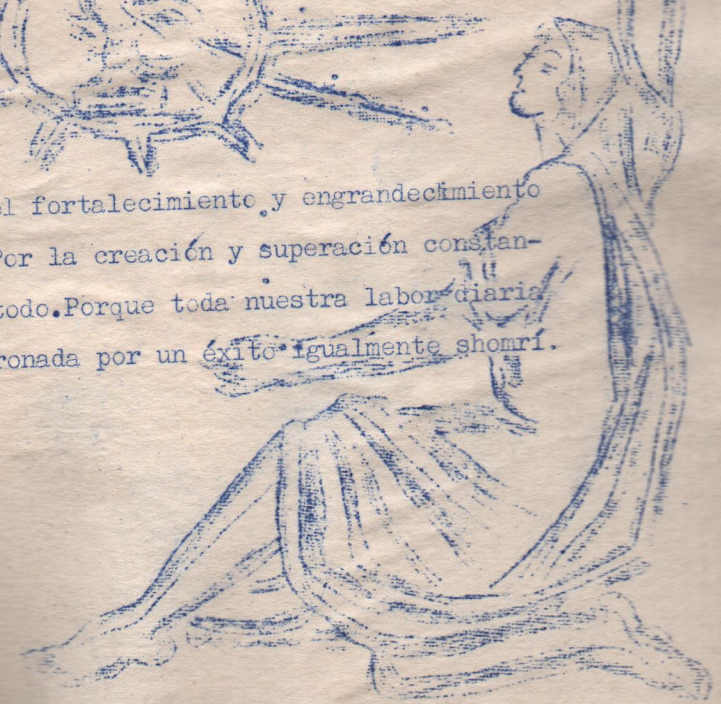 el fortalecimiento y engrandecimiento
Por la creación y superación constan-
todo.Porque toda nuestra labor diaria
ronada por un éxito igualmente shomrí.